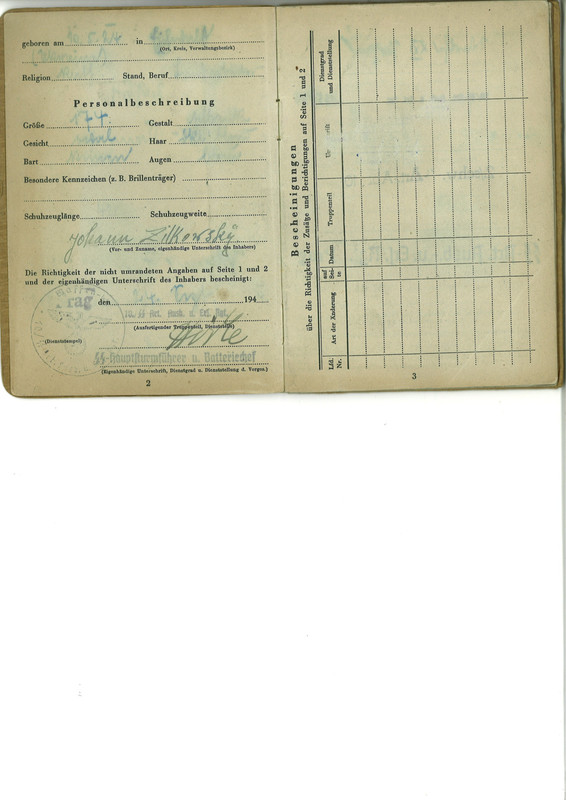 geboren am in
(Ort, Kreis, Verwaltungsbezirk)
Religion Stand, Beruf
Personalbeschreibung
Größe 174 Gestalt
Gesicht oval Haar
Bart Augen
Besondere Kennzeichen (z. B. Brillenträger)
Schuhzeuglänge Schuhzeugweite
Johann Zilkowsky
(Vor- und Zuname, eigenhändige Unterschrift des Inhabers)
Die Richtigkeit der nicht umrandeten Angaben auf Seite 1 und 2
und der eigenhändigen Unterschrift des Inhabers bescheinigt:
rag
den 194
(Ausfertigender Truppenteil, Dienststelle)
(Dienststempel)
SS-Hauptsturmführer u. Batteriechef
(Eigenhändige Unterschrift, Dienstgrad u. Dienststellung d. Vorges.)
2
Bescheinigungen
über die Richtigkeit der Zusätze und Berichtigungen auf Seite 1 und 2
Lfd. Nr.
Art der Änderung
auf Seite
Datum
Truppenteil
Dienstgrad
und Dienststellung
3